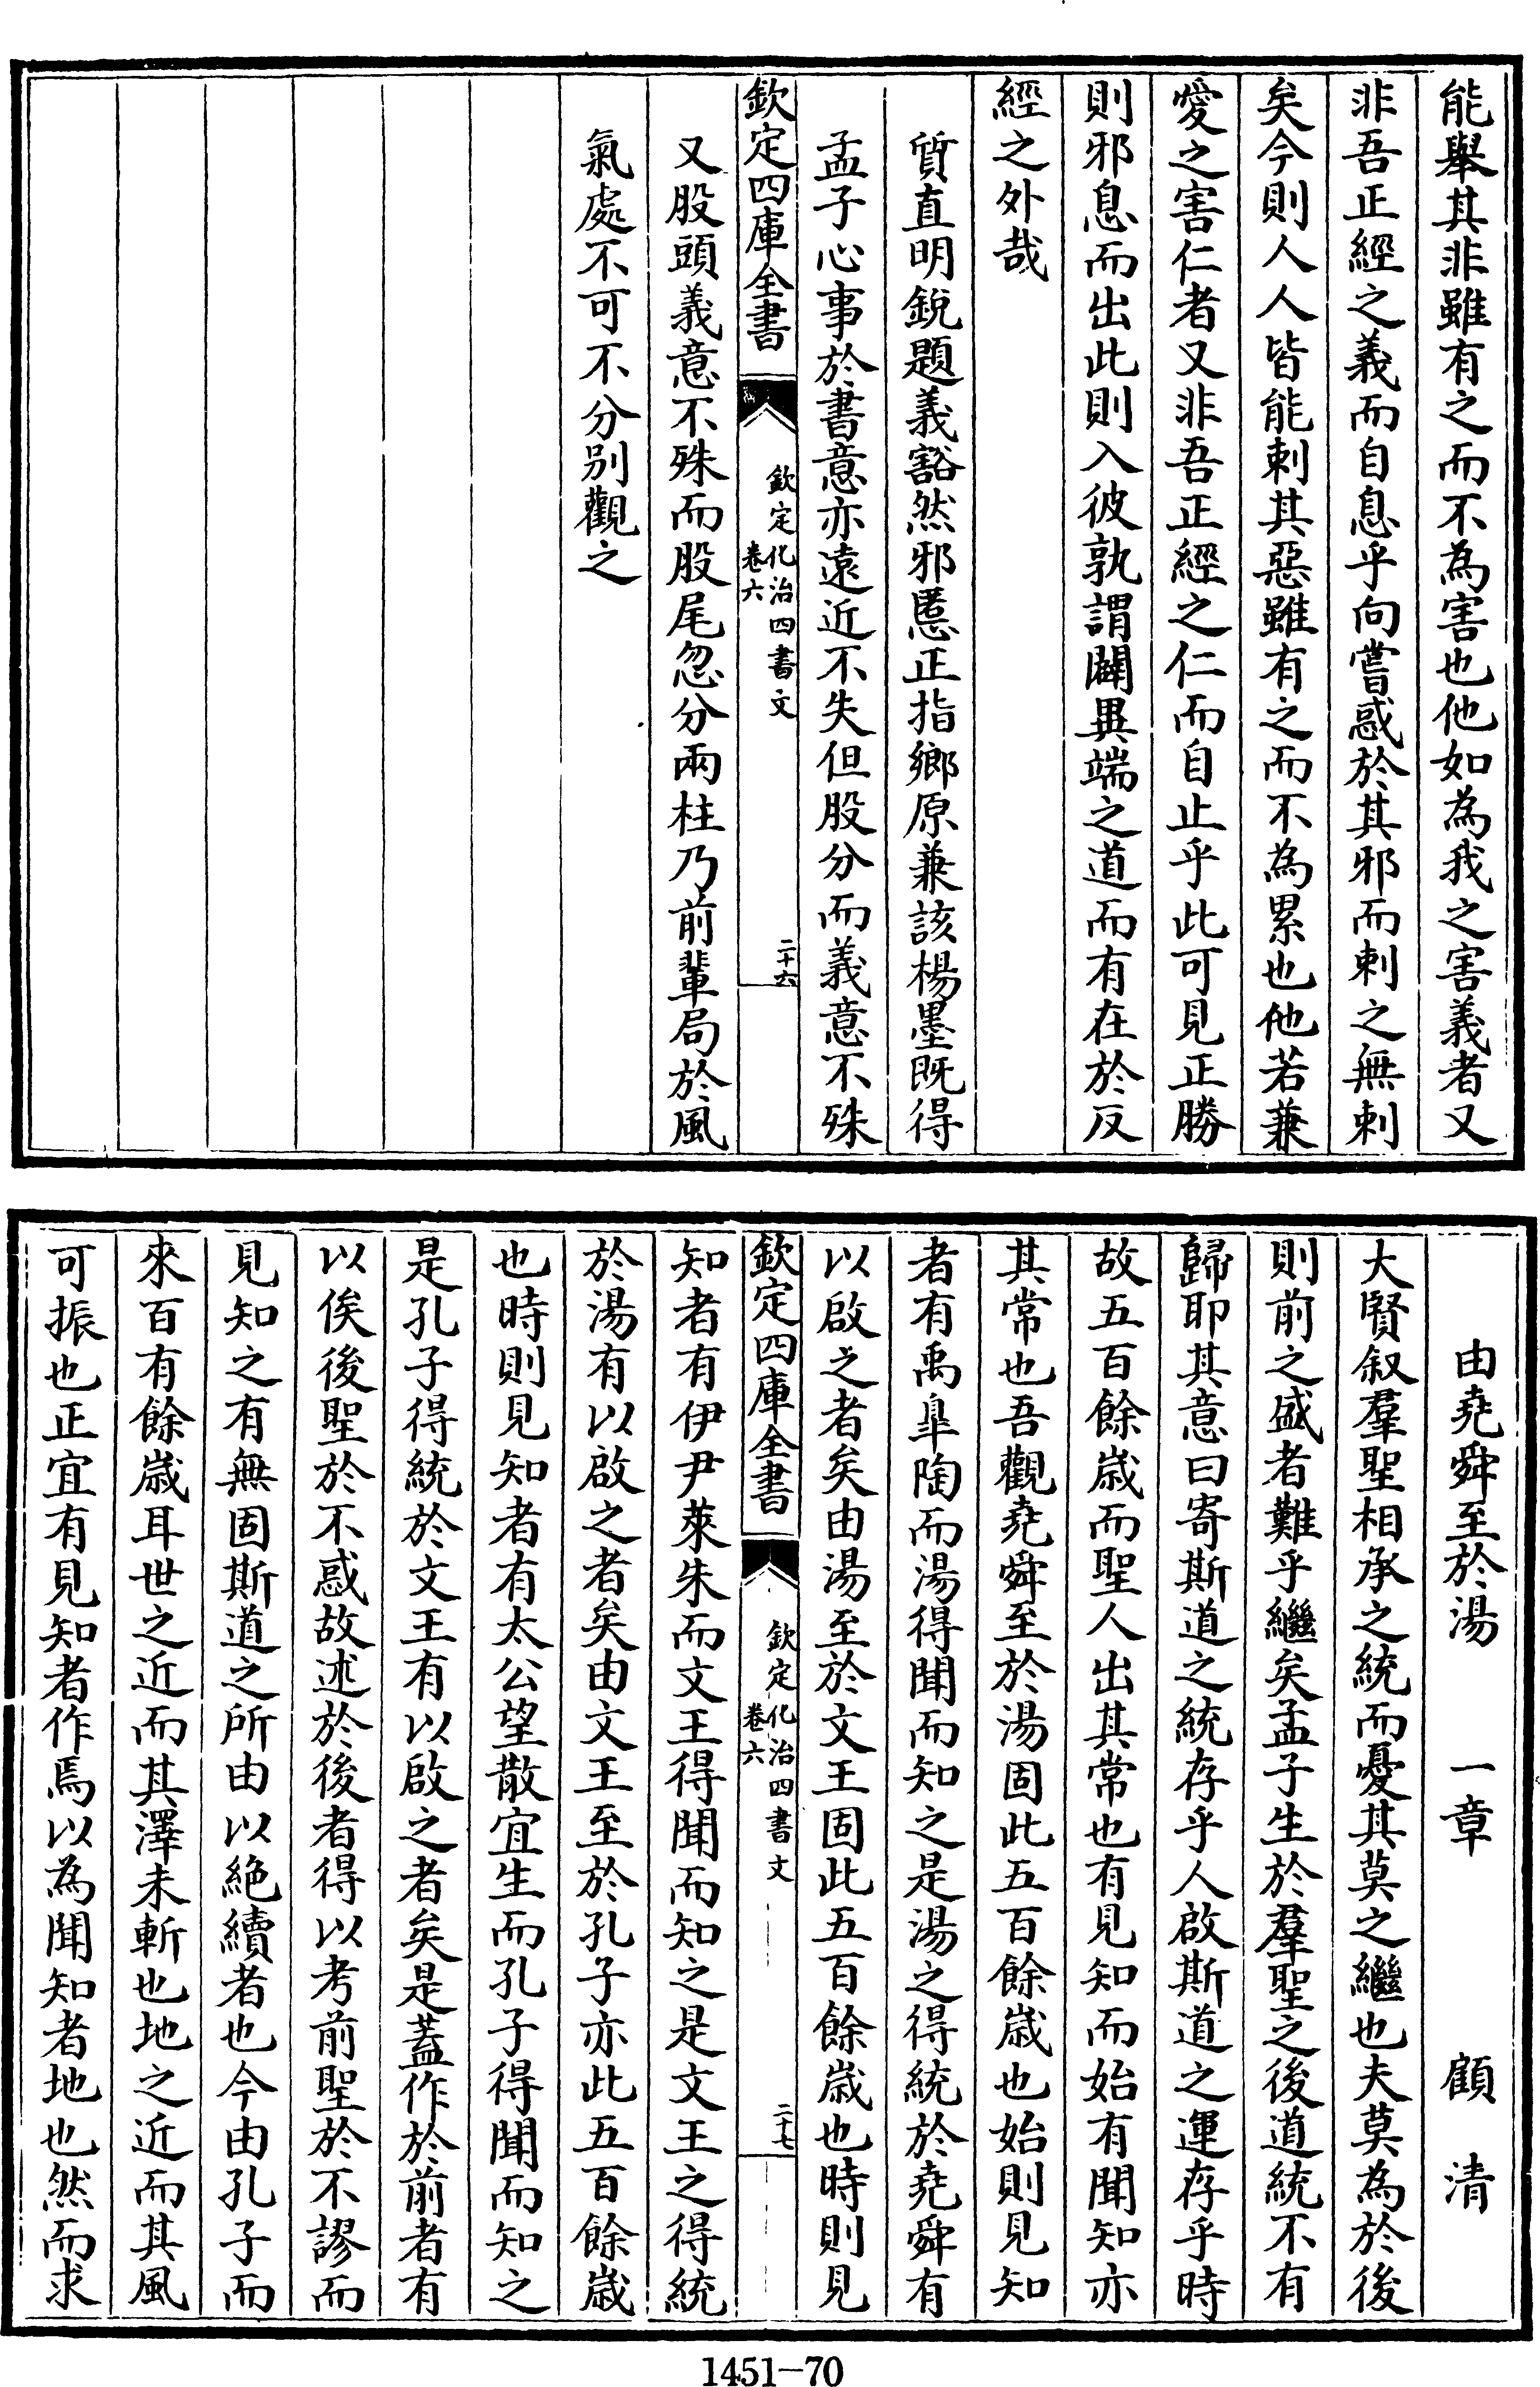 能舉其非雖有之而不為害也他如為我之害義者又
非吾正經之義而自息乎向嘗惑於其邪而刺之無刺
矣今則人人皆能刺其惡雖有之而不為累也他若兼
愛之害仁者又非吾正經之仁而自止乎此可見正勝
則邪息而出此則入彼孰謂闢異端之道而有在於反
經之外哉
質直明銳題義豁然邪慝正指鄉原兼該楊墨既得
孟子心事於書意亦遠近不失但股分而義意不殊
欽定四庫全書
欽定化治四書文
卷六
二十六
又股頭義意不殊而股尾忽分兩柱乃前輩局於風
氣處不可不分別觀之
由堯舜至於湯 一章 顧清
大賢叙羣聖相承之統而憂其莫之繼也夫莫為於後
則前之盛者難乎繼矣孟子生於羣聖之後道統不有
歸耶其意曰寄斯道之統存乎人啟斯道之運存乎時
故五百餘歲而聖人出其常也有見知而始有聞知亦
其常也吾觀堯舜至於湯固此五百餘歲也始則見知
者有禹臯陶而湯得聞而知之是湯之得統於堯舜有
以啟之者矣由湯至於文王固此五百餘歲也時則見
欽定四庫全書
欽定化治四書文
卷六
二十七
知者有伊尹萊朱而文王得聞而知之是文王之得統
於湯有以啟之者矣由文王至於孔子亦此五百餘歲
也時則見知者有太公望散宜生而孔子得聞而知之
是孔子得統於文王有以啟之者矣是蓋作於前者有
以俟後聖於不惑故述於後者得以考前聖於不謬而
見知之有無固斯道之所由以絶續者也今由孔子而
來百有餘歲耳世之近而其澤未斬也地之近而其風
可振也正宜有見知者作焉以為聞知者地也然而求
1451-70